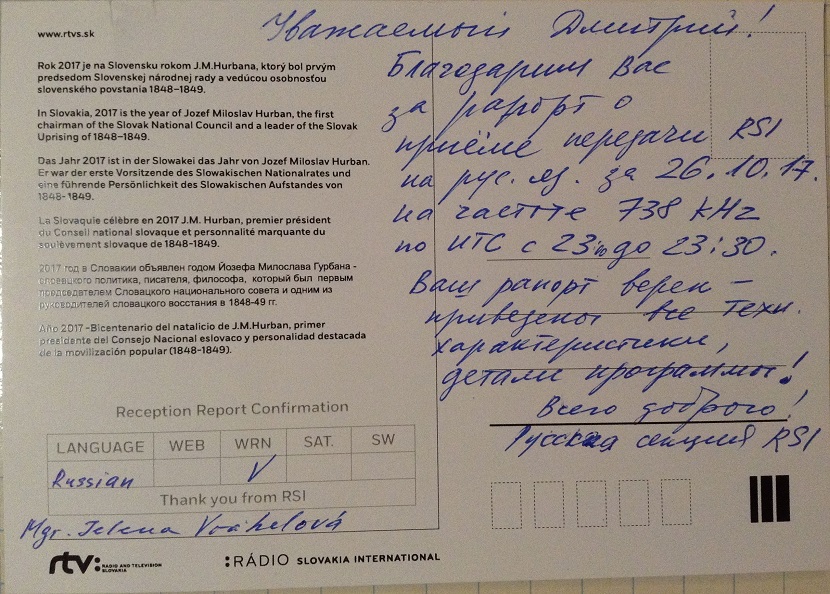 www.rtvs.sk
Rok 2017 je na Slovensku rokom J.M.Hurbana, ktorý bol prvým
predsedom Slovenskej národnej rady a vedúcou osobnosťou
slovenského povstania 1848-1849.
In Slovakia, 2017 is the year of Jozef Miloslav Hurban, the first
chairman of the Slovak National Council and a leader of the Slovak
Uprising of 1848-1849.
Das Jahr 2017 ist in der Slowakei das Jahr von Jozef Miloslav Hurban.
Er war der erste Vorsitzende des Slowakischen Nationalrates und
eine führende Persönlichkeit des Slowakischen Aufstandes von
1848- 1849.
La Slovaquie célèbre en 2017 J.M. Hurban, premier président
du Conseil national slovaque et personnalité marquante du
soulèvement slovaque de 1848-1849.
2017 год в Словакии объявлен годом Йозефа Милослава Гурбана -
словацкого политика, писателя, философа, который был первым
председателем Словацкого национального совета и одним из
руководителей словацкого восстания в 1848-49 гг.
Año 2017 -Bicentenario del natalicio de J.M.Hurban, primer
presidente del Consejo Nacional eslovaco y personalidad destacada
de la movilización popular (1848-1849).
Reception Report Confirmation
LANGUAGE WEB WRN SAT. SW
Russian V
Thank you from RSI
Mgr. Jelena
rtv: RADIO AND TELEVISION
SLOVAKIA
:RÁDIO SLOVAKIA INTERNATIONAL
Уважаемый Дмитрий!
Благодарим Вас
за рапорт о
приёме передачи RSI
на рус. яз. за 26.10.17.
на частоте 738 kHz
по UTC с 23:00 до 23:30.
Ваш рапорт верен –
приведены все техн.
характеристики,
детали программы!
Всего доброго!
Русская секция RSI